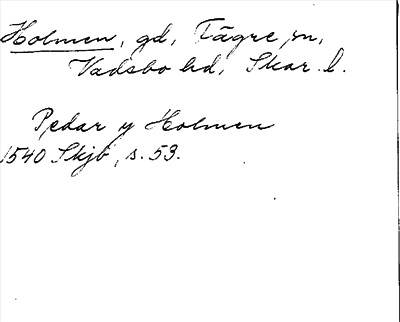 Holmen, gd, Fägre sn,
Vadsbo hd, Skar. l.
Pedar y Holmen
1540 Skjb, s. 53.